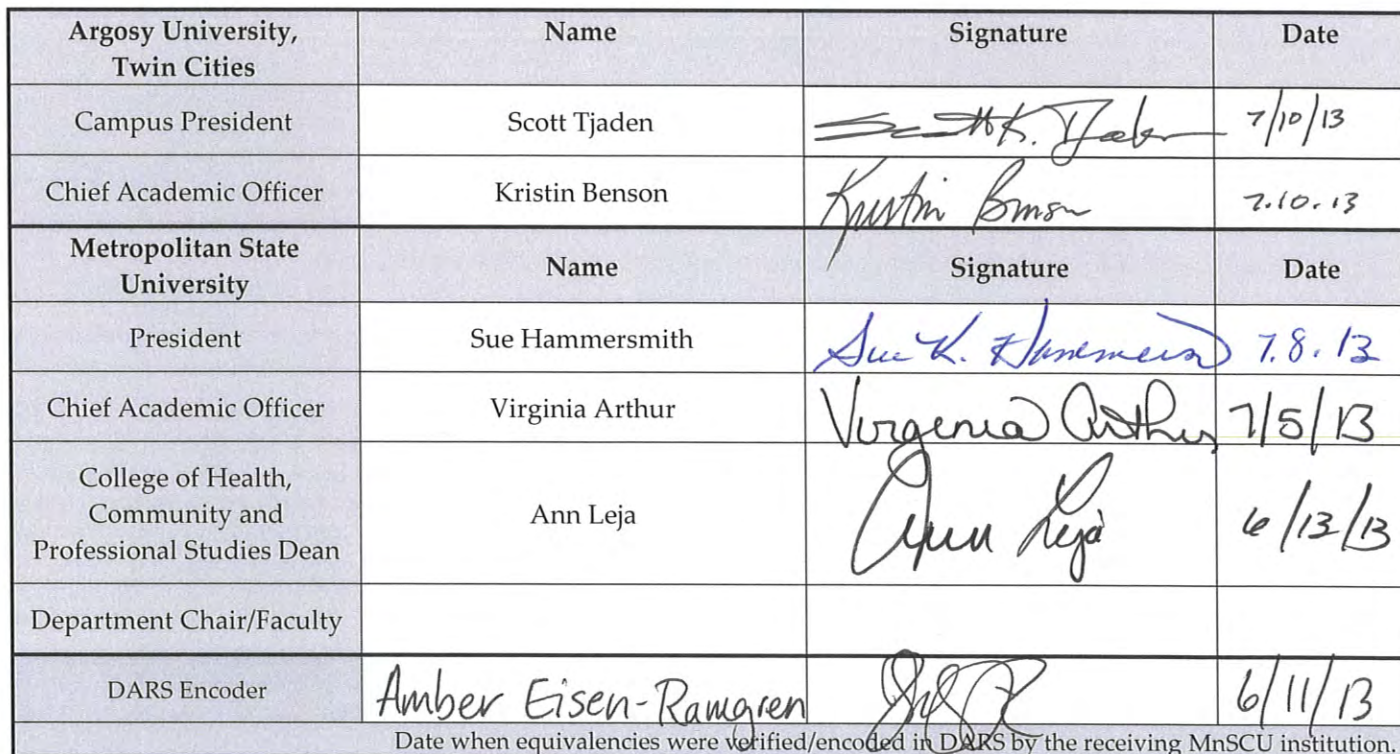 Argosy University, Name Signature Date
Twin Cities
Campus President Scott Tjaden Scott K. Tjaden 7/10/13
Chief Academic Officer Kristin Benson Kristin Benson 7.10.13
Metropolitan State Name Signature Date
University
President Sue Hammersmith Sue K. Hammersmith 7.8.13
Chief Academic Officer Virginia Arthur Virginia Arthur 7/5/13
College of Health,
Community and
Professional Studies Dean Ann Leja Ann Leja 6/13/13
Department Chair/Faculty
DARS Encoder Amber Eisen-Ramgren 6/11/13
Date when equivalencies were verified/encoded in DARS by the receiving MnSCU institution